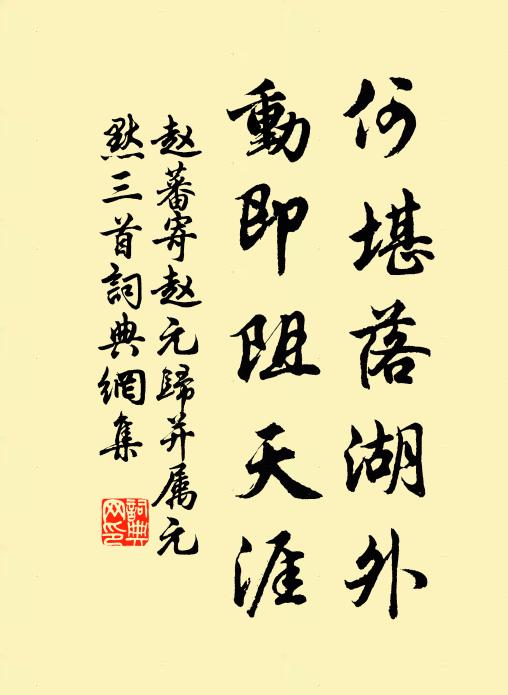 何堪落湖外
動即阻天涯
赵蕃寄赵元歸并属元
默三首詞典網集
詞典
网印